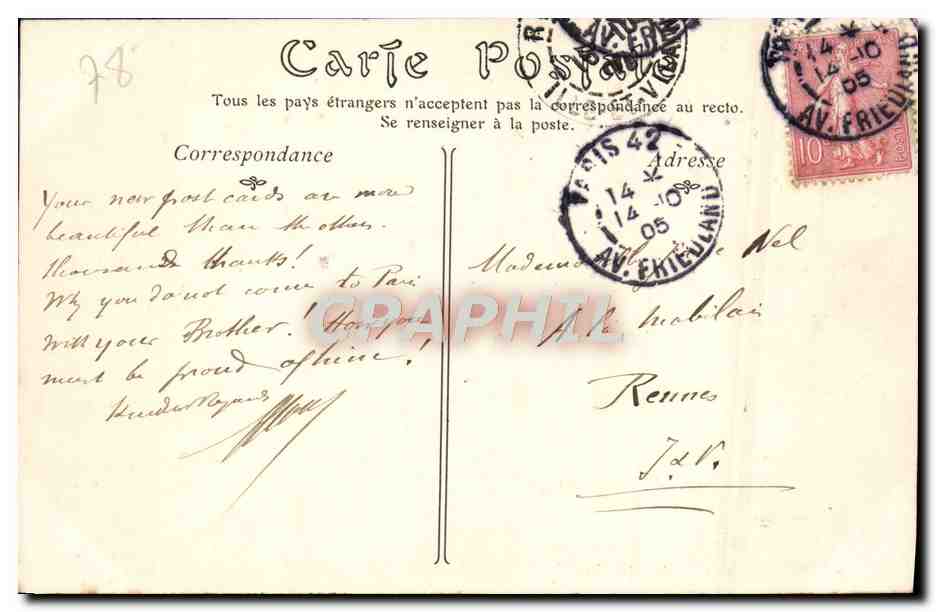 78
Carte Postale
Tous les pays étrangers n'acceptent pas la correspondance au recto.
Se renseigner à la poste.
Correspondance
Adresse
PARIS 42
14
14 -10
05
AV. FRIEDLAND
14
14 -10
05
AV. FRIEDLAND
10
AV. FRIE
ILLE-ET-VILAINE
Your new post cards are more
beautiful than the others.
Thousands thanks!
Why you do not come to Paris
with your Brother! How you
must be proud of him!
Kinder Regards
Nel
A la Mabilais
Rennes
I & V.
CPAPHIL